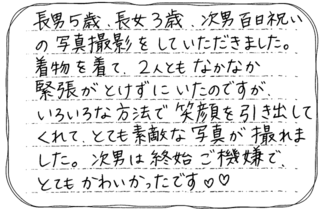 長男5歳、長女3歳、次男百日祝い
の写真撮影をしていただきました。
着物を着て、2人ともなかなか
緊張がとけずにいたのですが、
いろいろな方法で笑顔を引き出して
くれて、とても素敵な写真が撮れま
した。次男は終始ご機嫌で、
とてもかわいかったです♡♡